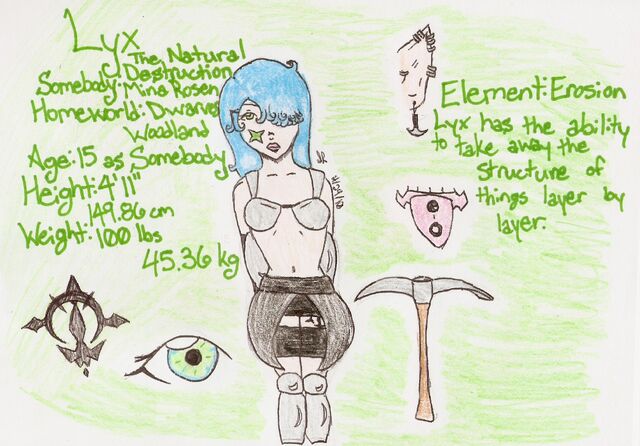 Lyx
The Natural
Destruction
Somebody: Mina Rosen
Homeworld: Dwarven
Woodland
Age: 15 as Somebody
Height: 4' 11"
149.86 cm
Weight: 100 lbs
45.36 kg
Element: Erosion
Lyx has the ability
to take away the
structure of
things layer by
layer.